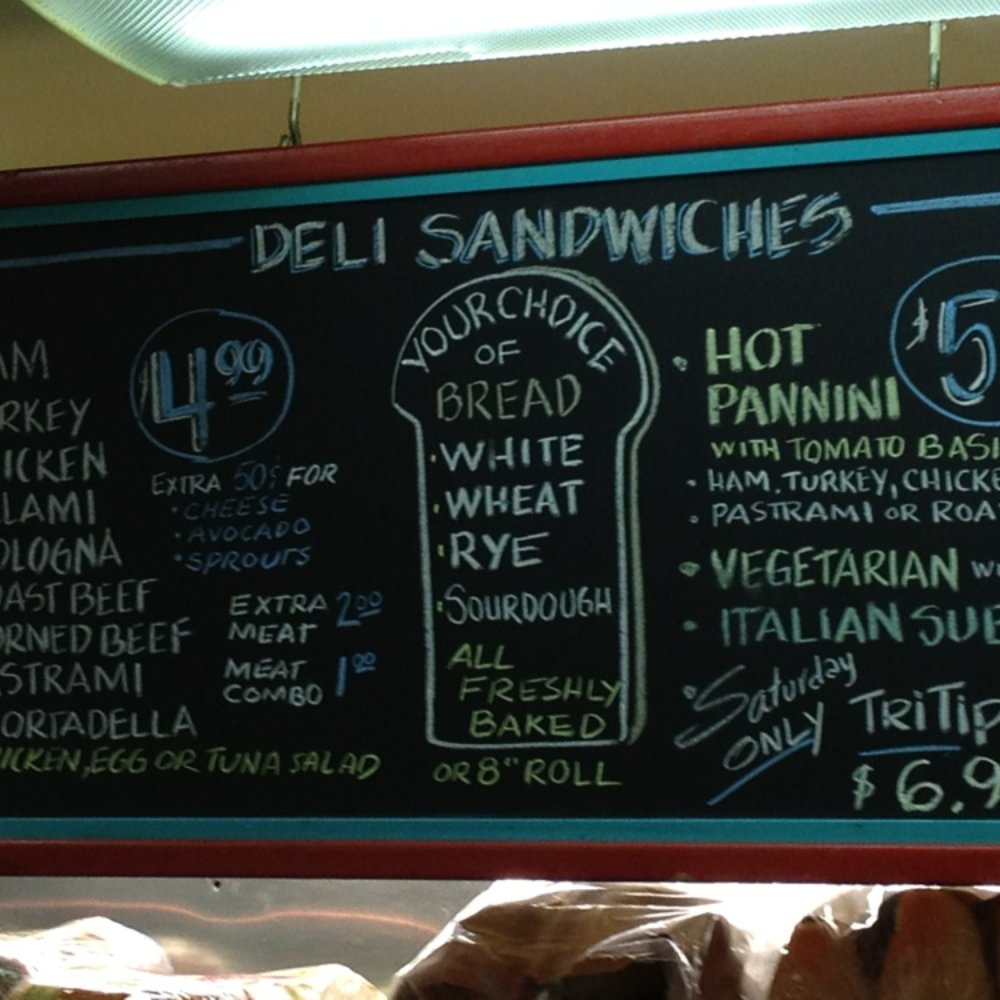 DELI SANDWICHES
AM
RKEY
ICKEN
LAMI
OLOGNA
AST BEEF
ORNED BEEF
STRAMI
ORTADELLA
ICKEN, EGG OR TUNA SALAD
$4.99
EXTRA 50¢ FOR
• CHEESE
• AVOCADO
• SPROUTS
EXTRA 2.00
MEAT
MEAT 1.00
COMBO
YOUR CHOICE
OF
BREAD
• WHITE
• WHEAT
• RYE
• SOURDOUGH
ALL
FRESHLY
BAKED
OR 8" ROLL
$5
• HOT
PANNINI
WITH TOMATO BASI
• HAM, TURKEY, CHICKE
• PASTRAMI OR ROA
• VEGETARIAN WI
• ITALIAN SUB
• Saturday
ONLY
TRITIP
$6.9